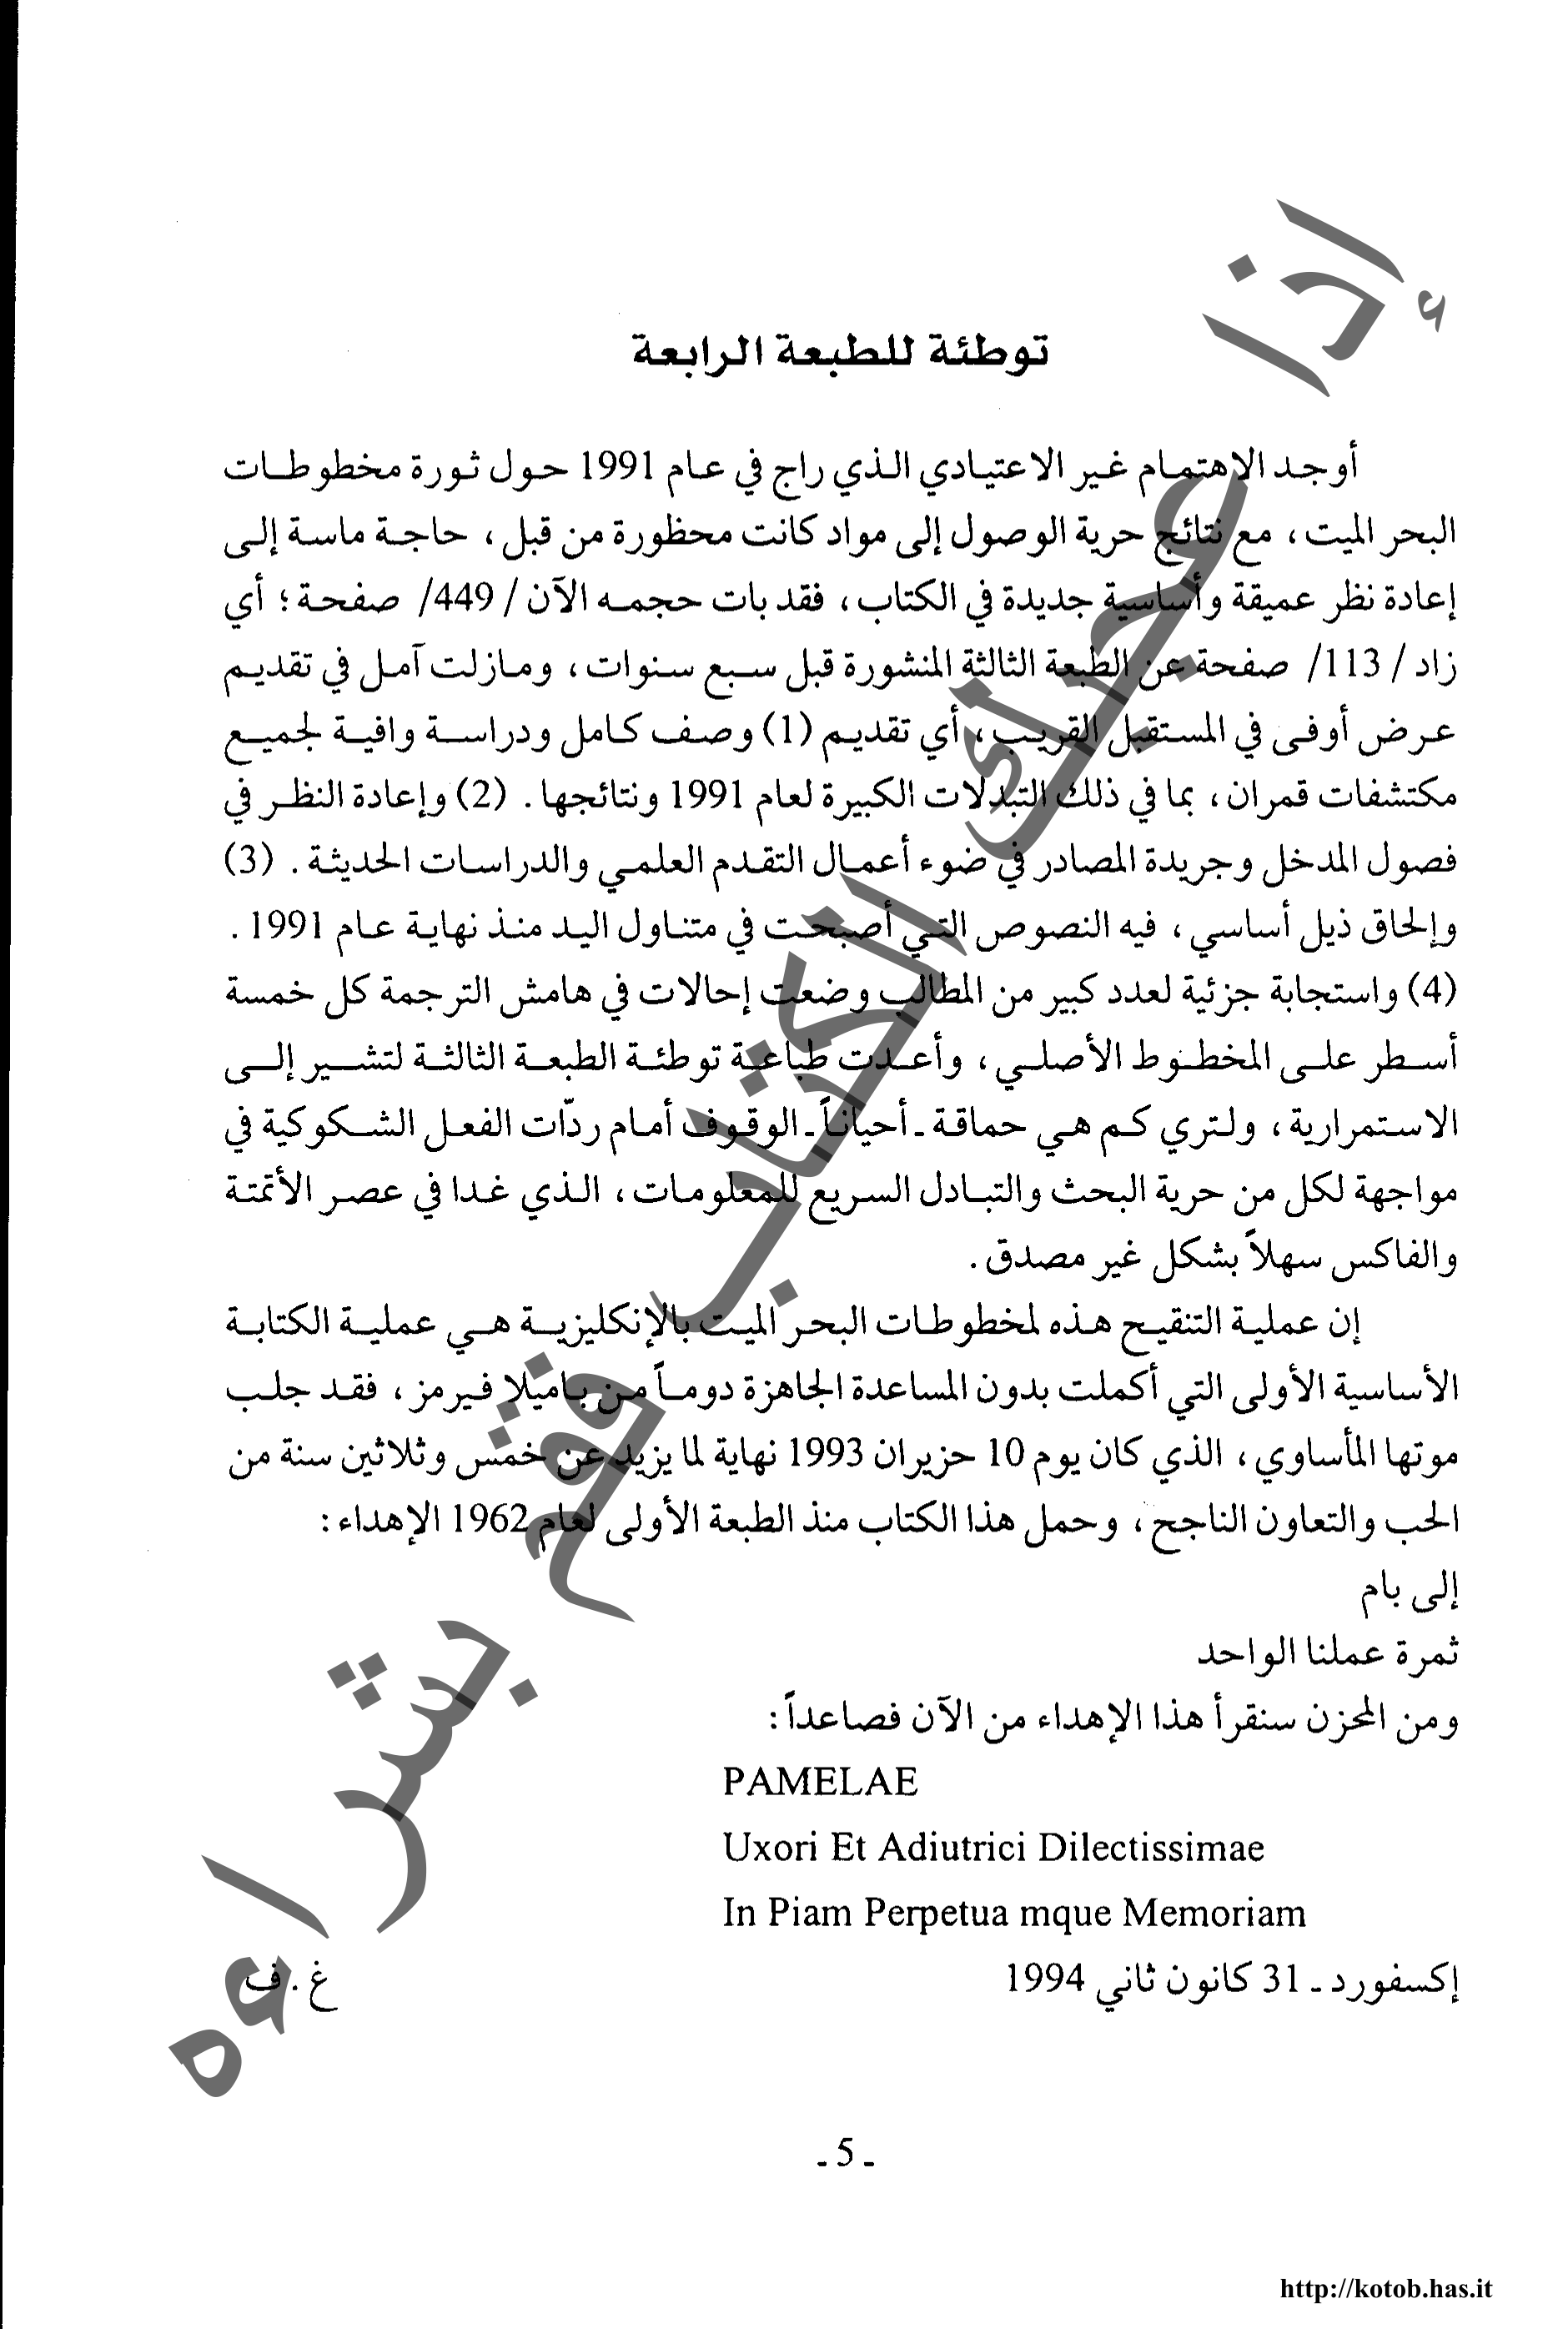 توطئة للطبعة الرابعة
أوجد الاهتمام غير الاعتيادي الذي راج في عام 1991 حول ثورة مخطوطات
البحر الميت، مع نتائج حرية الوصول إلى مواد كانت محظورة من قبل، حاجة ماسة إلى
إعادة نظر عميقة وأساسية جديدة في الكتاب، فقد بات حجمه الآن /449/ صفحة؛ أي
زاد /113/ صفحة عن الطبعة الثالثة المنشورة قبل سبع سنوات، ومازلت آمل في تقديم
عرض أوفى في المستقبل القريب، أي تقديم (1) وصف كامل ودراسة وافية لجميع
مكتشفات قمران، بما في ذلك التبدلات الكبيرة لعام 1991 ونتائجها. (2) وإعادة النظر في
فصول المدخل وجريدة المصادر في ضوء أعمال التقدم العلمي والدراسات الحديثة. (3)
وإلحاق ذيل أساسي، فيه النصوص التي أصبحت في متناول اليد منذ نهاية عام 1991.
(4) واستجابة جزئية لعدد كبير من المطالب وضعت إحالات في هامش الترجمة كل خمسة
أسطر على المخطوط الأصلي، وأعدت طباعة توطئة الطبعة الثالثة لتشير إلى
الاستمرارية، ولتري كم هي حماقة ـ أحياناً ـ الوقوف أمام ردّات الفعل الشكوكية في
مواجهة لكل من حرية البحث والتبادل السريع للمعلومات، الذي غدا في عصر الأتمتة
والفاكس سهلاً بشكل غير مصدق.
إن عملية التنقيح هذه لمخطوطات البحر الميت بالإنكليزية هي عملية الكتابة
الأساسية الأولى التي أكملت بدون المساعدة الجاهزة دوماً من باميلا فيرمز، فقد جلب
موتها المأساوي، الذي كان يوم 10 حزيران 1993 نهاية لما يزيد عن خمس وثلاثين سنة من
الحب والتعاون الناجح، وحمل هذا الكتاب منذ الطبعة الأولى لعام 1962 الإهداء:
إلى بام
ثمرة عملنا الواحد
ومن المحزن سنقرأ هذا الإهداء من الآن فصاعداً:
PAMELAE
Uxori Et Adiutrici Dilectissimae
In Piam Perpetua mque Memoriam
إكسفورد ـ 31 كانون ثاني 1994 غ. ف
ـ 5 ـ
إذا أعجبك الكتاب فقم بشراءه
http://kotob.has.it